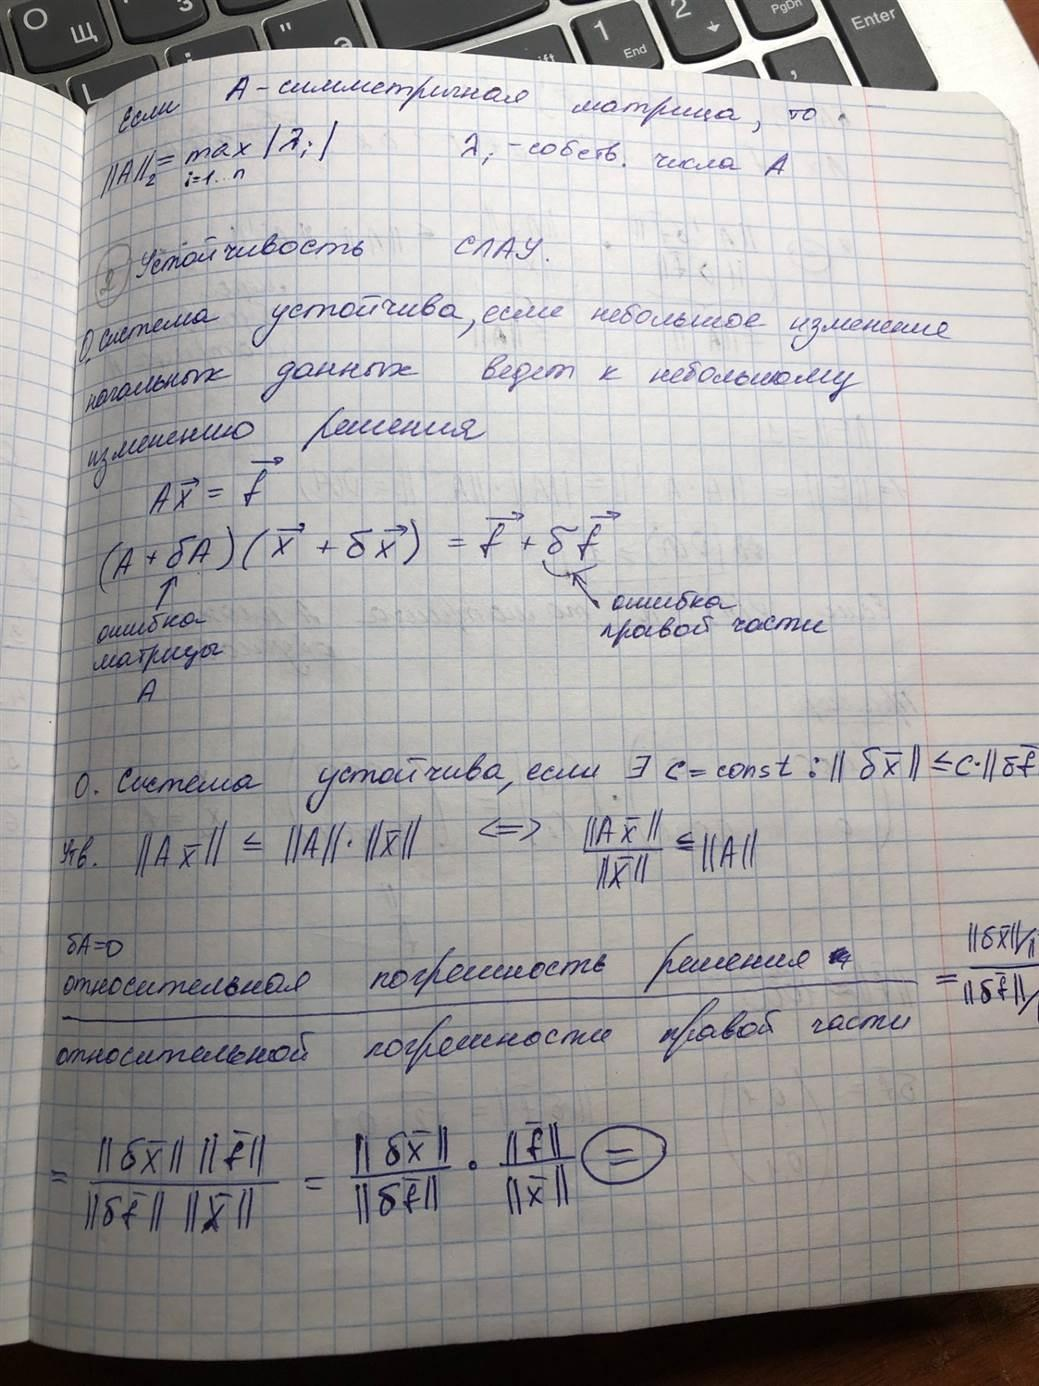 О
Щ
Э
1
End
2
PgDn
Enter
Если А-симметричная матрица, то
||A||₂ = max |λᵢ| λᵢ - собств. числа А
i=1..n
2 Устойчивость СЛАУ.
О. Система устойчива, если небольшое изменение
начальных данных ведет к небольшому
изменению решения
Ax⃗ = f⃗
(A + δA)(x⃗ + δx⃗) = f⃗ + δf⃗
↑ ошибка
ошибка правой части
матрицы
А
О. Система устойчива, если ∃ c = const : ||δx̄|| ≤ c·||δf̄
Утв. ||Ax̄|| ≤ ||A||·||x̄|| <=> ||Ax̄||/||x̄|| ≤ ||A||
δA=0
относительная погрешность решения = ||δx̄||/||
относительной погрешности правой части ||δf̄||/
= ||δx̄|| ||f̄|| / ||δf̄|| ||x̄|| = ||δx̄||/||δf̄|| · ||f̄||/||x̄|| =